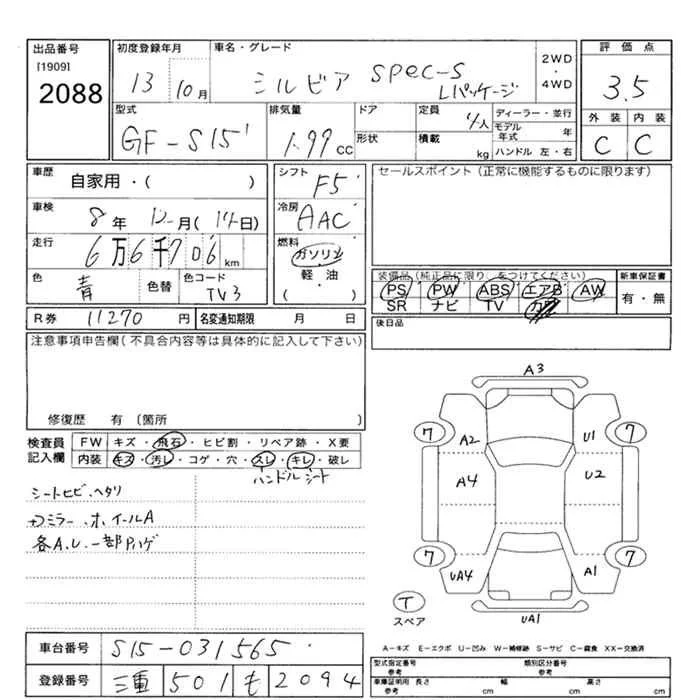 出品番号 初度登録年月 車名・グレード 2WD・4WD 評価点
[1909]
2088 13 10月 シルビア spec-S Lパッケージ 3.5
型式 排気量 ドア 定員 ディーラー・並行 外装 内装
GF-S15 1.99 cc 形状 積載 4人 kg モデル年式 年 C C
ハンドル 左・右
車歴 シフト セールスポイント(正常に機能するものに限ります)
自家用・( ) F5
車検 冷房
8年 12月( 14日) AAC
走行 燃料
6万6千706km ガソリン
色 色替 色コード 軽・油
青 TV3 ( )
装備品(純正品に限り、をつけてください) 新車保証書
PS PW ABS エアB AW 有・無
SR ナビ TV カワ
R券 11270円 名変通知期限 月 日 後日品
注意事項申告欄(不具合内容等は具体的に記入して下さい)
修復歴 有 〔箇所 〕
検査員記入欄 FW キズ・飛石・ヒビ割・リペア跡・X要
内装 キズ・汚レ・コゲ・穴・スレ・キレ・破レ
ハンドル シート
シートヒビ、ヘタリ
ミラー、ホイールA
各A.U.一部Pハゲ
A3
7 A2 U1 7
A4 U2
7 UA4 A1 7
T
スペア UA1
A-キズ E-エクボ U-凹み W-補修跡 S-サビ C-腐食 XX-交換済
車台番号 S15-031565
型式指定番号 類別区分番号
参考
登録番号 三重 501 も 2094
車庫証明用 長さ 幅 高さ
参考 cm cm cm